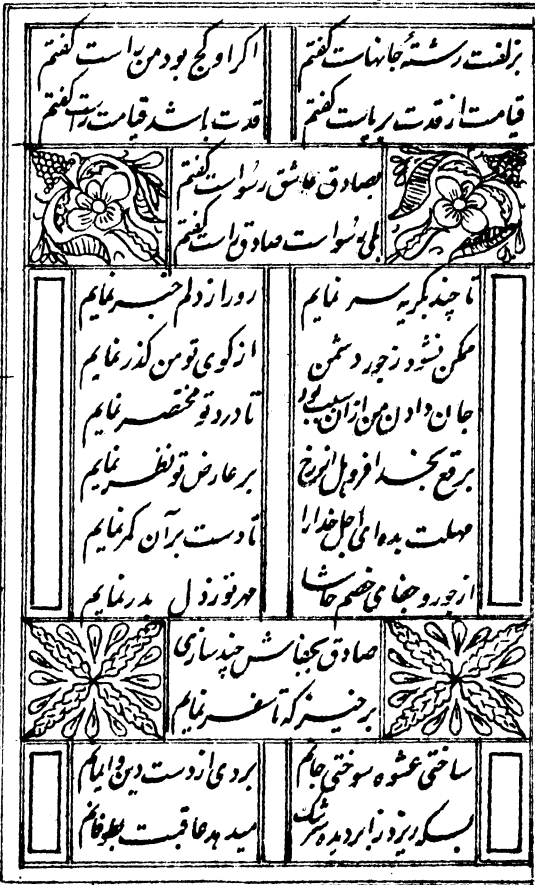 بزلفت رشتۀ جانهاست گفتم
اگر او کج بود من راست گفتم
قیامت از قدت برپاست گفتم
قدت باشد قیامت راست گفتم
بصادق عاشق رسواست گفتم
بلی رسواست صادق راست گفتم
تا چند بگریه سر نمایم
رو راز دلم خبر نمایم
ممکن نشود ز جور دشمن
از کوی تو من گذر نمایم
جان دادن من از آن سبب بود
تا درد تو مختصر نمایم
برقع بخدا فروهل از رخ
بر عارض تو نظر نمایم
مهلت بده ای اجل خدا را
تا دست بر آن کمر نمایم
از جور و جفای خصم حاشا
مهر تو ز دل بدر نمایم
صادق بجفاش چند سازی
برخیز که تا سفر نمایم
ساختی عشوه سوختی جانم
بردی از دست دین و ایمانم
بسکه ریزد ز ابر دیده سرشک
میدهد عاقبت بطوفانم